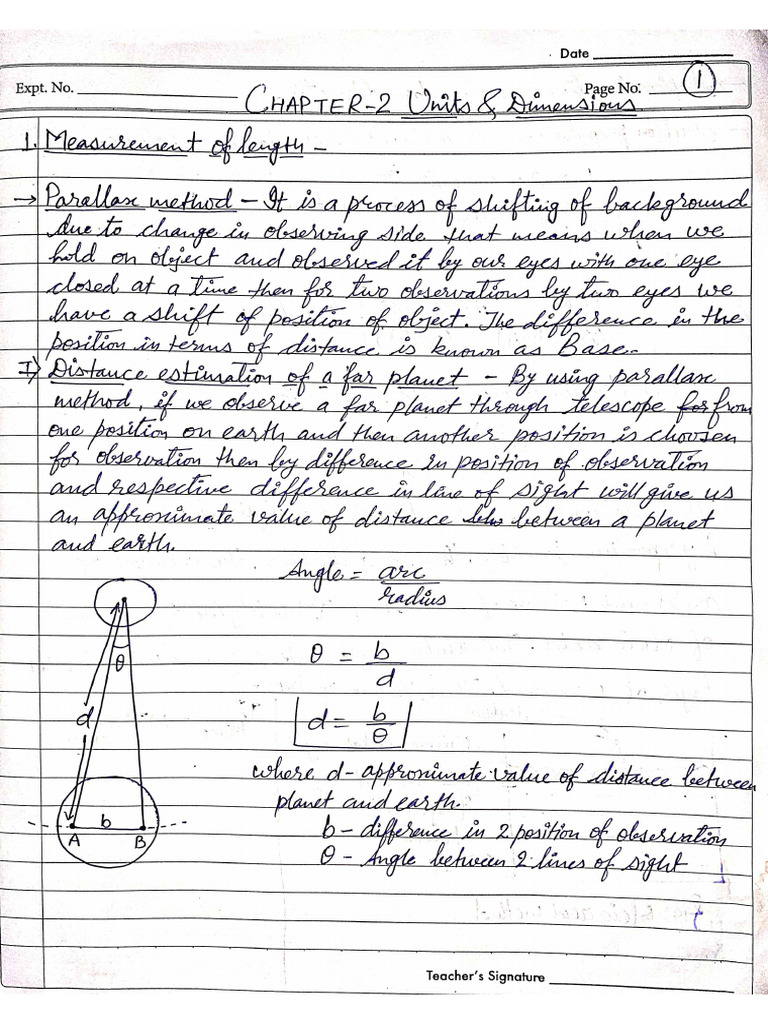 Date
Expt. No.
Page No. 1
CHAPTER-2 Units & Dimensions
1. Measurement of length -
→ Parallax method - It is a process of shifting of background
due to change in observing side that means when we
hold on object and observed it by our eyes with one eye
closed at a time then for two observations by two eyes we
have a shift of position of object. The difference in the
position in terms of distance is known as Base.
I) Distance estimation of a far planet - By using parallax
method, if we observe a far planet through telescope for from
one position on earth and then another position is choosen
for observation then by difference in position of observation
and respective difference in line of sight will give us
an approximate value of distance between a planet
and earth.
Angle = arc
radius
θ
θ = b
d
d
d = b
θ
where d - approximate value of distance between
planet and earth.
b
b - difference in 2 position of observation
A B
θ - Angle between 2 lines of sight
Teacher's Signature